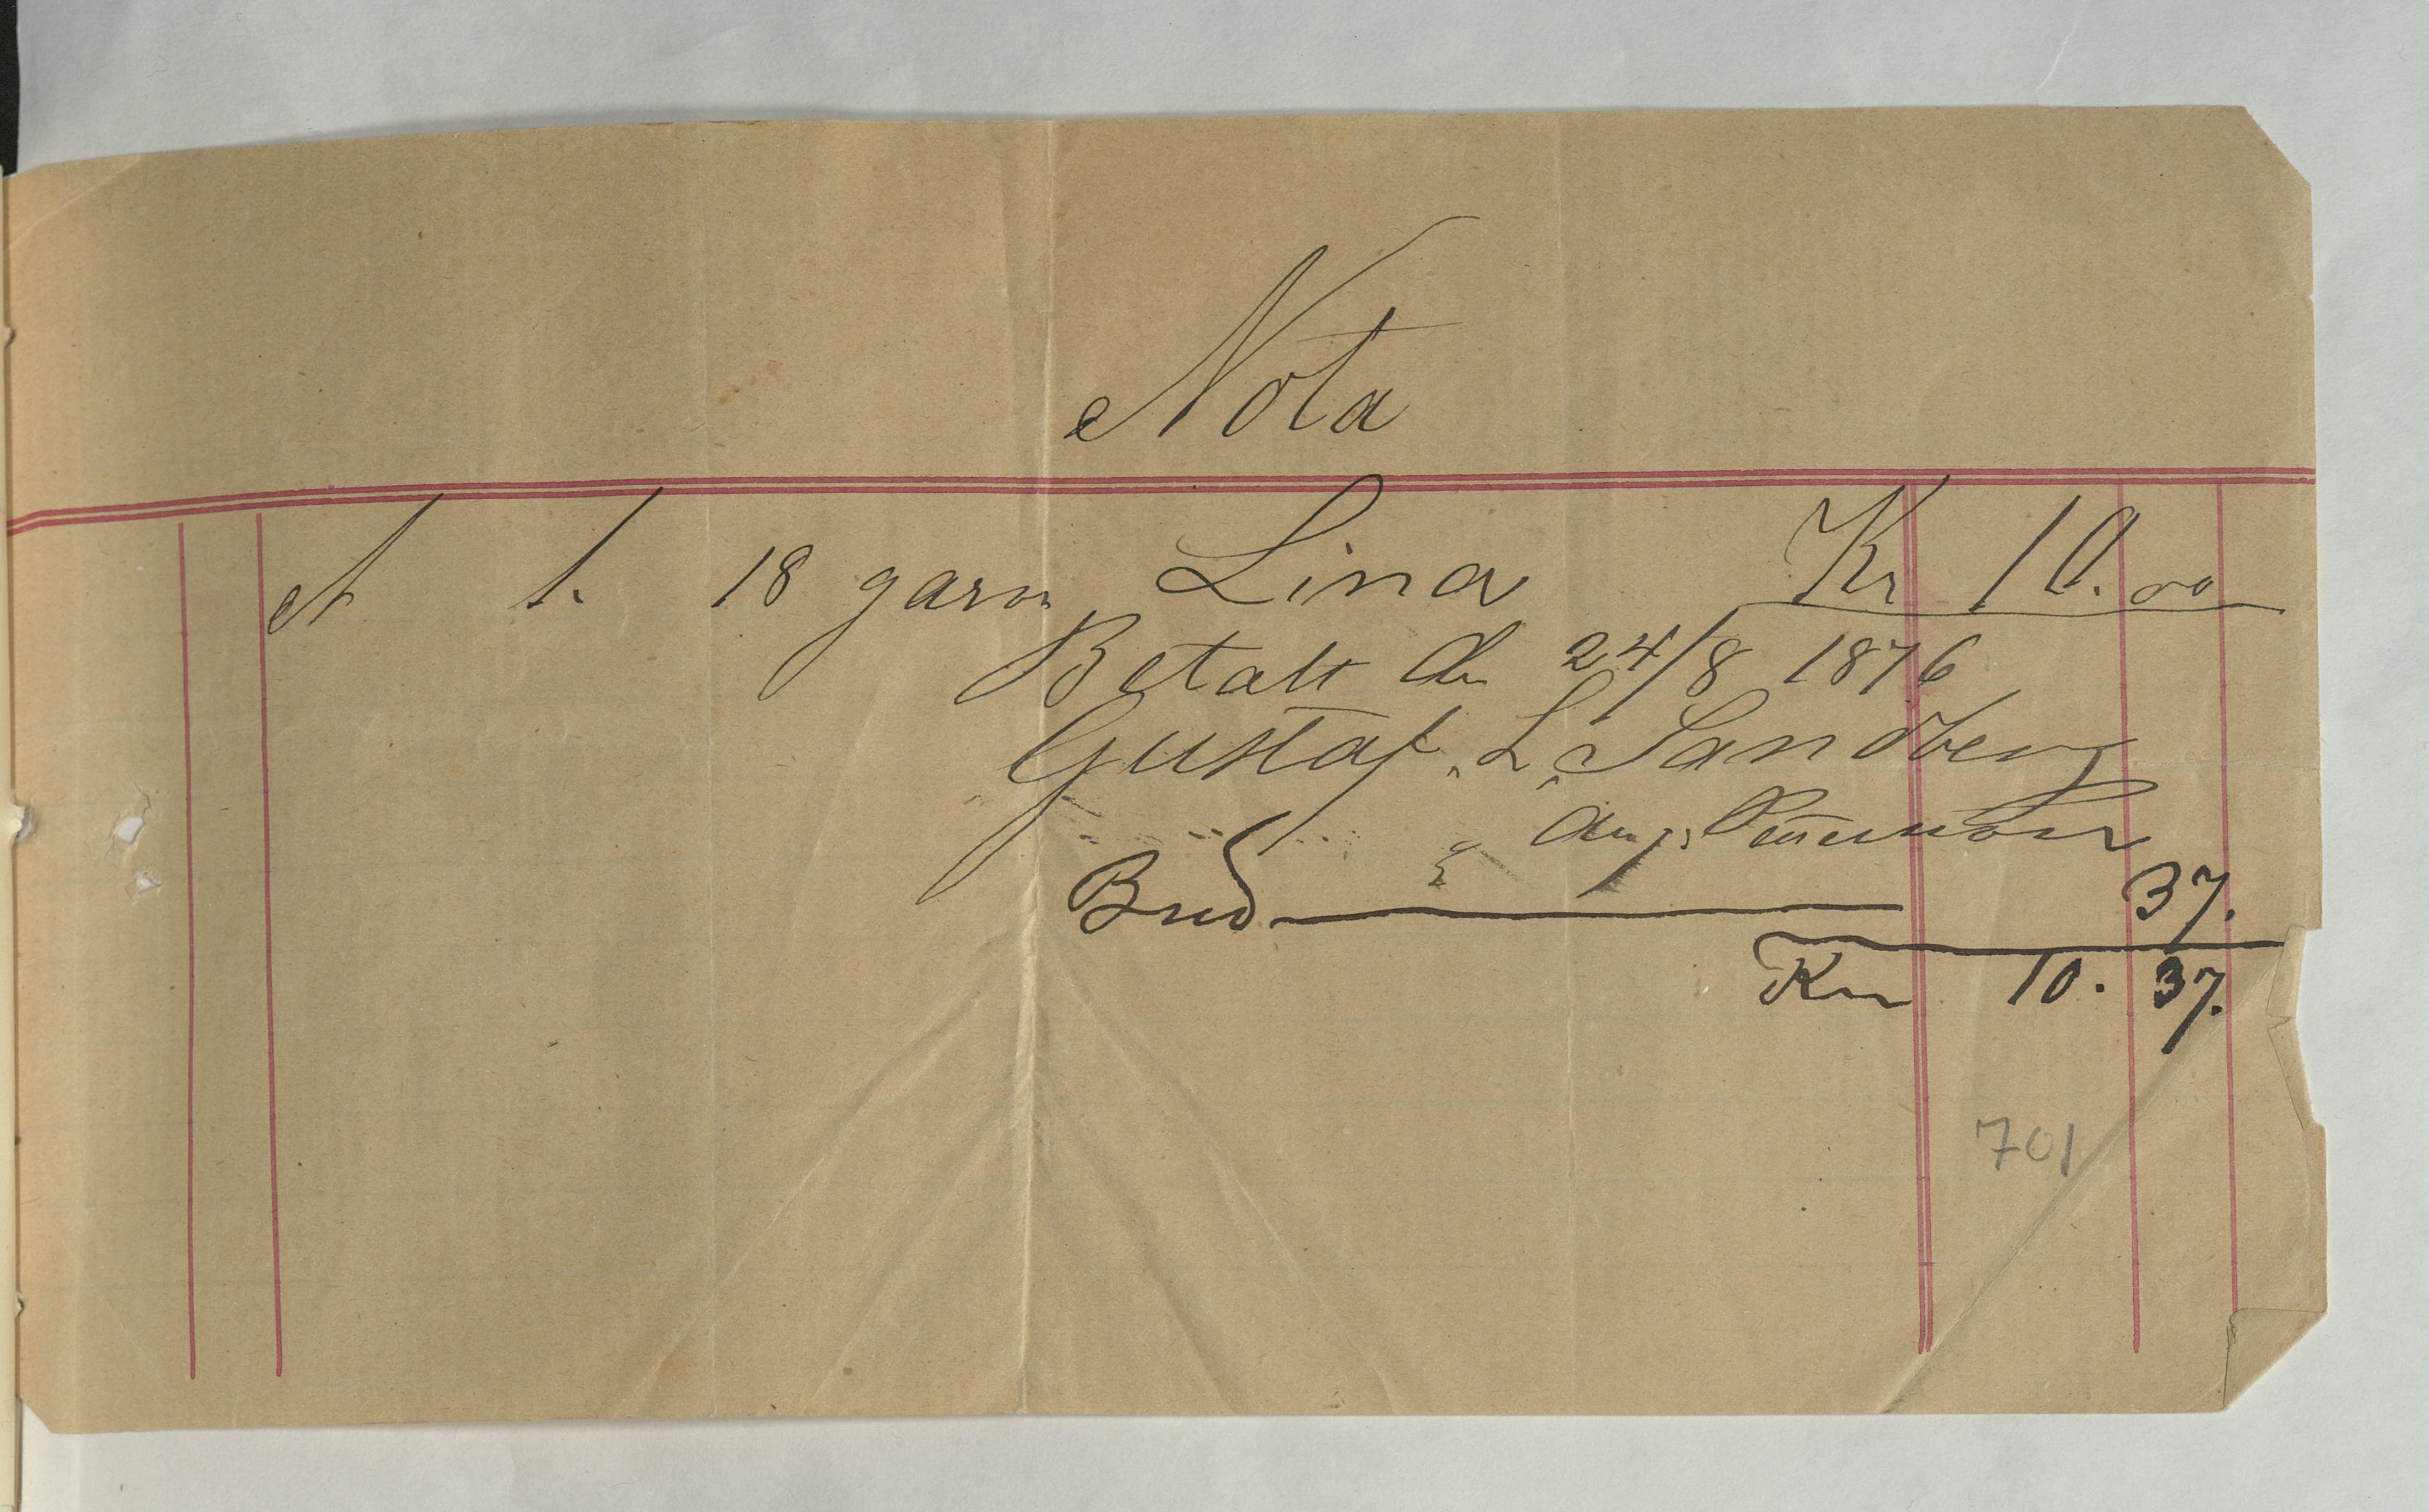 Nota
A 1. 18 garn Lina Kr 10.00
Betalt den 24/8 1876
Gustaf L. Sandberg
Aug.
Bud 37.
Kr 10. 37.
701